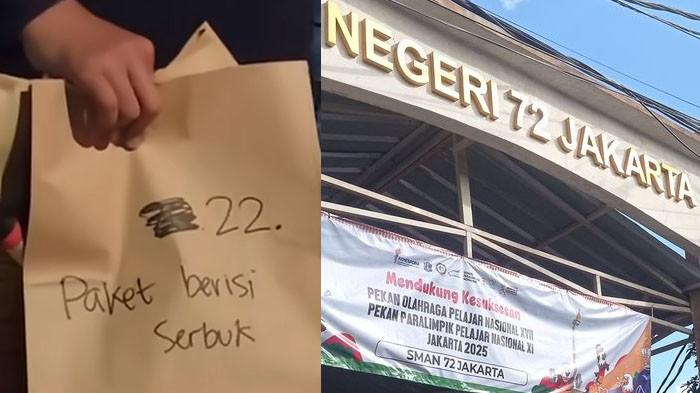 22.
Paket berisi
Serbuk
NEGERI 72 JAKARTA
Mendukung Kesuksesan
PEKAN OLAHRAGA PELAJAR NASIONAL XVII
PEKAN PARALIMPIK PELAJAR NASIONAL XI
JAKARTA 2025
SMAN 72 JAKARTA